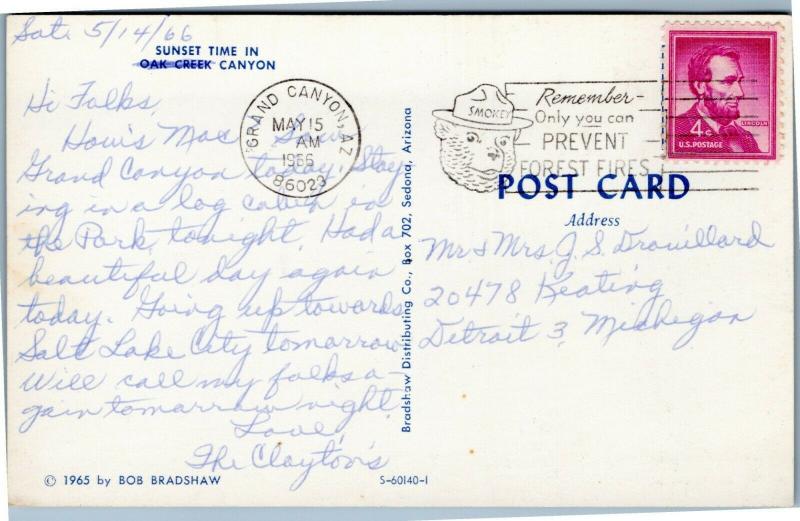 Sat. 5/14/66
SUNSET TIME IN
OAK CREEK CANYON
Hi Folks,
How's Mac? Saw
Grand Canyon today. Stay
ing in a log cabin in
the Park, tonight. Had a
beautiful day again
today. Going up towards
Salt Lake City tomorrow
Will call my folks a-
gain tomorrow night.
Love,
The Clayton's
© 1965 by BOB BRADSHAW
S-60140-1
Bradshaw Distributing Co., Box 702, Sedona, Arizona
GRAND CANYON, AZ
MAY 15
AM
1966
86023
SMOKEY
Remember-
Only you can
PREVENT
FOREST FIRES
LINCOLN
4¢
U.S. POSTAGE
POST CARD
Address
Mr & Mrs. J. S. Drouillard
20478 Keating
Detroit 3, Michigan